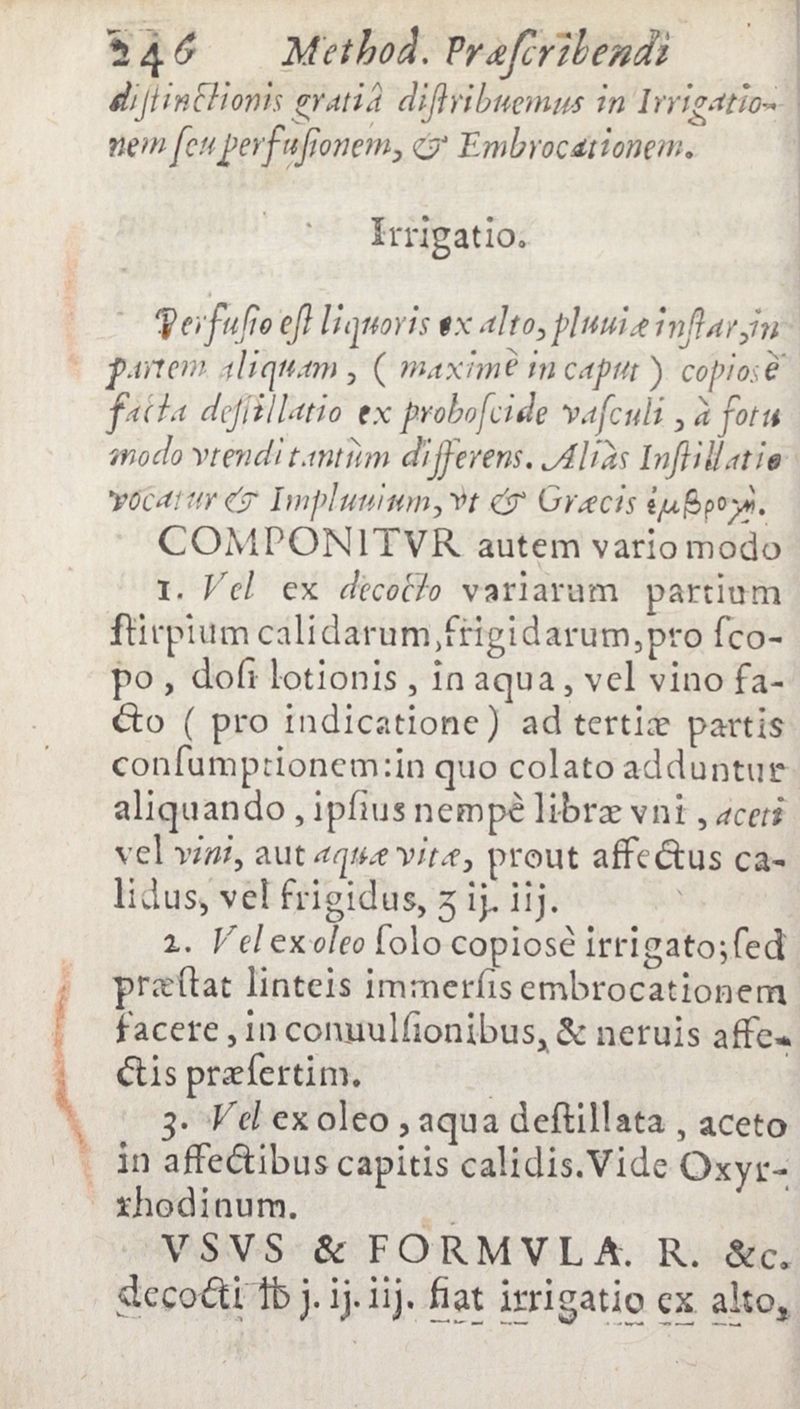 246 Method. Præſcribendi
diſtinctionis gratiâ diſtribuemus in Irrigatio-
nem ſeu perfuſionem, & Embrocationem.
Irrigatio.
Perfuſio eſt liquoris ex alto, pluuiæ inſtar, in
partem aliquam, ( maximè in caput ) copiosè
facta deſtillatio ex proboſcide vaſculi, à fotu
modo vtendi tantùm differens. Aliàs Inſtillatio
vocatur & Impluuium, vt & Græcis ἐμβροχή.
COMPONITVR autem vario modo
1. Vel ex decocto variarum partium
ſtirpium calidarum, frigidarum, pro ſco-
po, doſi lotionis, in aqua, vel vino fa-
cto ( pro indicatione ) ad tertiæ partis
conſumptionem: in quo colato adduntur
aliquando, ipſius nempè libræ vni, aceti
vel vini, aut aquæ vitæ, prout affectus ca-
lidus, vel frigidus, ʒ ij. iij.
2. Vel ex oleo ſolo copiosè irrigato; ſed
præſtat linteis immerſis embrocationem
facere, in conuulſionibus, & neruis affe-
ctis præſertim.
3. Vel ex oleo, aqua deſtillata, aceto
in affectibus capitis calidis. Vide Oxyr-
rhodinum.
VSVS & FORMVLA. R. &c.
decocti ℔ j. ij. iij. fiat irrigatio ex alto,